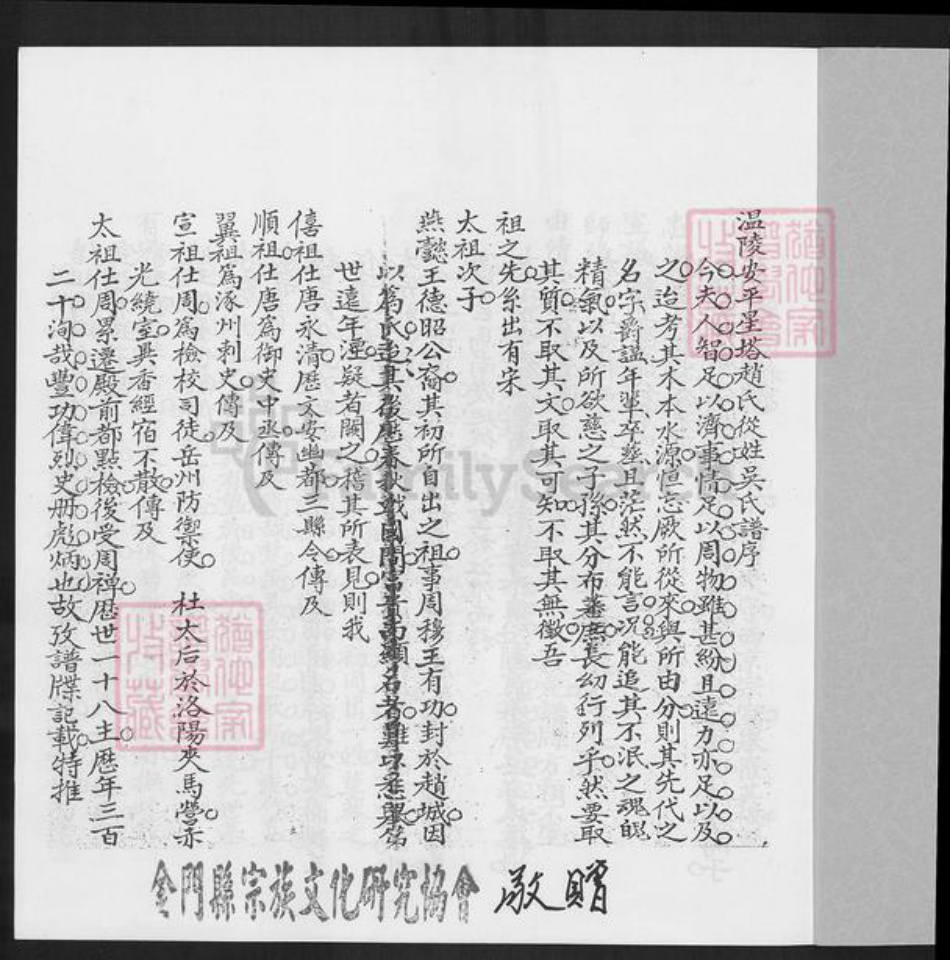 温陵安平星塔趙氏從姓吳氏譜序
今夫人智足以濟事情足以周物雖甚紛且遠力亦足以及
之迨考其木本水源恒忘厥所從來與所由分則其先代之
名字爵諡年輩卒塟且茫然不能言况能追其不泯之魂魄
精氣以及所欲慈之子孫其分布蕃庶長幼行列乎然要取
其質不取其文取其可知不取其無徵吾
祖之先系出有宋
太祖次子
燕懿王德昭公裔其初所自出之祖事周穆王有功封於趙城因
以爲氏迨其後歷春秋戰國間富貴而顯名者難以悉舉第
世遠年湮疑者闕之稽其所表見則我
僖祖仕唐永清歷文安幽都三縣令傳及
順祖仕唐爲御史中丞傳及
翼祖爲涿州刺史傳及
宣祖仕周爲檢校司徒岳州防禦使 杜太后於洛陽夾馬營赤
光繞室異香經宿不散傳及
太祖仕周累遷殿前都點檢後受周禅歷世一十八主歷年三百
二十洵哉豐功偉烈史册彪炳也故攷譜牒記載特推
金門縣宗族文化研究協會 敬贈
FamilySearch